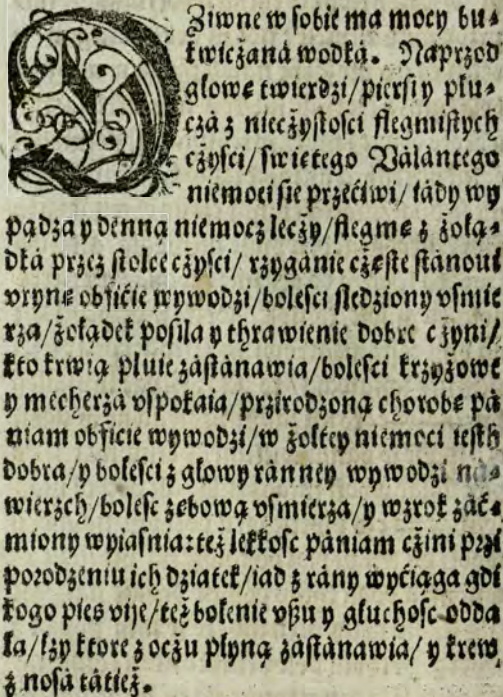 DZiwne w sobie ma mocy bu⸗
kwiczáná wodká. Naprzod
głowę twierdzi/piersi y płu⸗
czá z nieczystości flegmistych
czyści/swiętego Wálántego
niemoci sie przećiwi/iády wy
pądza y denną niemocz leczy/flegmę z żołą⸗
dká przez stolce czyści/rzygánie częste stánoui
vrynę obfićie wywodzi/bolesci sledziony vśmie
rza/żołądek posila y thrawienie dobre czyni/
kto krwią pluie zástánawia/bolesci krzyżowe
y mecherzá vspokaia/przirodzoną chorobę pá
niam obficie wywodzi/w żołtey niemoci iesth
dobra/y bolesci z głowy ránney wywodzi ná⸗
wierzch/bolesc zebową vśmierza/y wzrok záć⸗
miony wyiaśnia: też lekkosc pániam cżini przi
porodzeniu ich dziatek/iad z rány wyćiąga gdi
kogo pies vije/też bolenie vßu y głuchosc odda
la/łzy ktore z oczu płyną zástánawia/y krew
z nosá tákież.